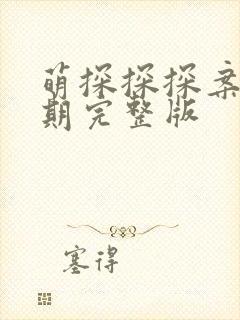 萌探探探案
期完整版
塞得